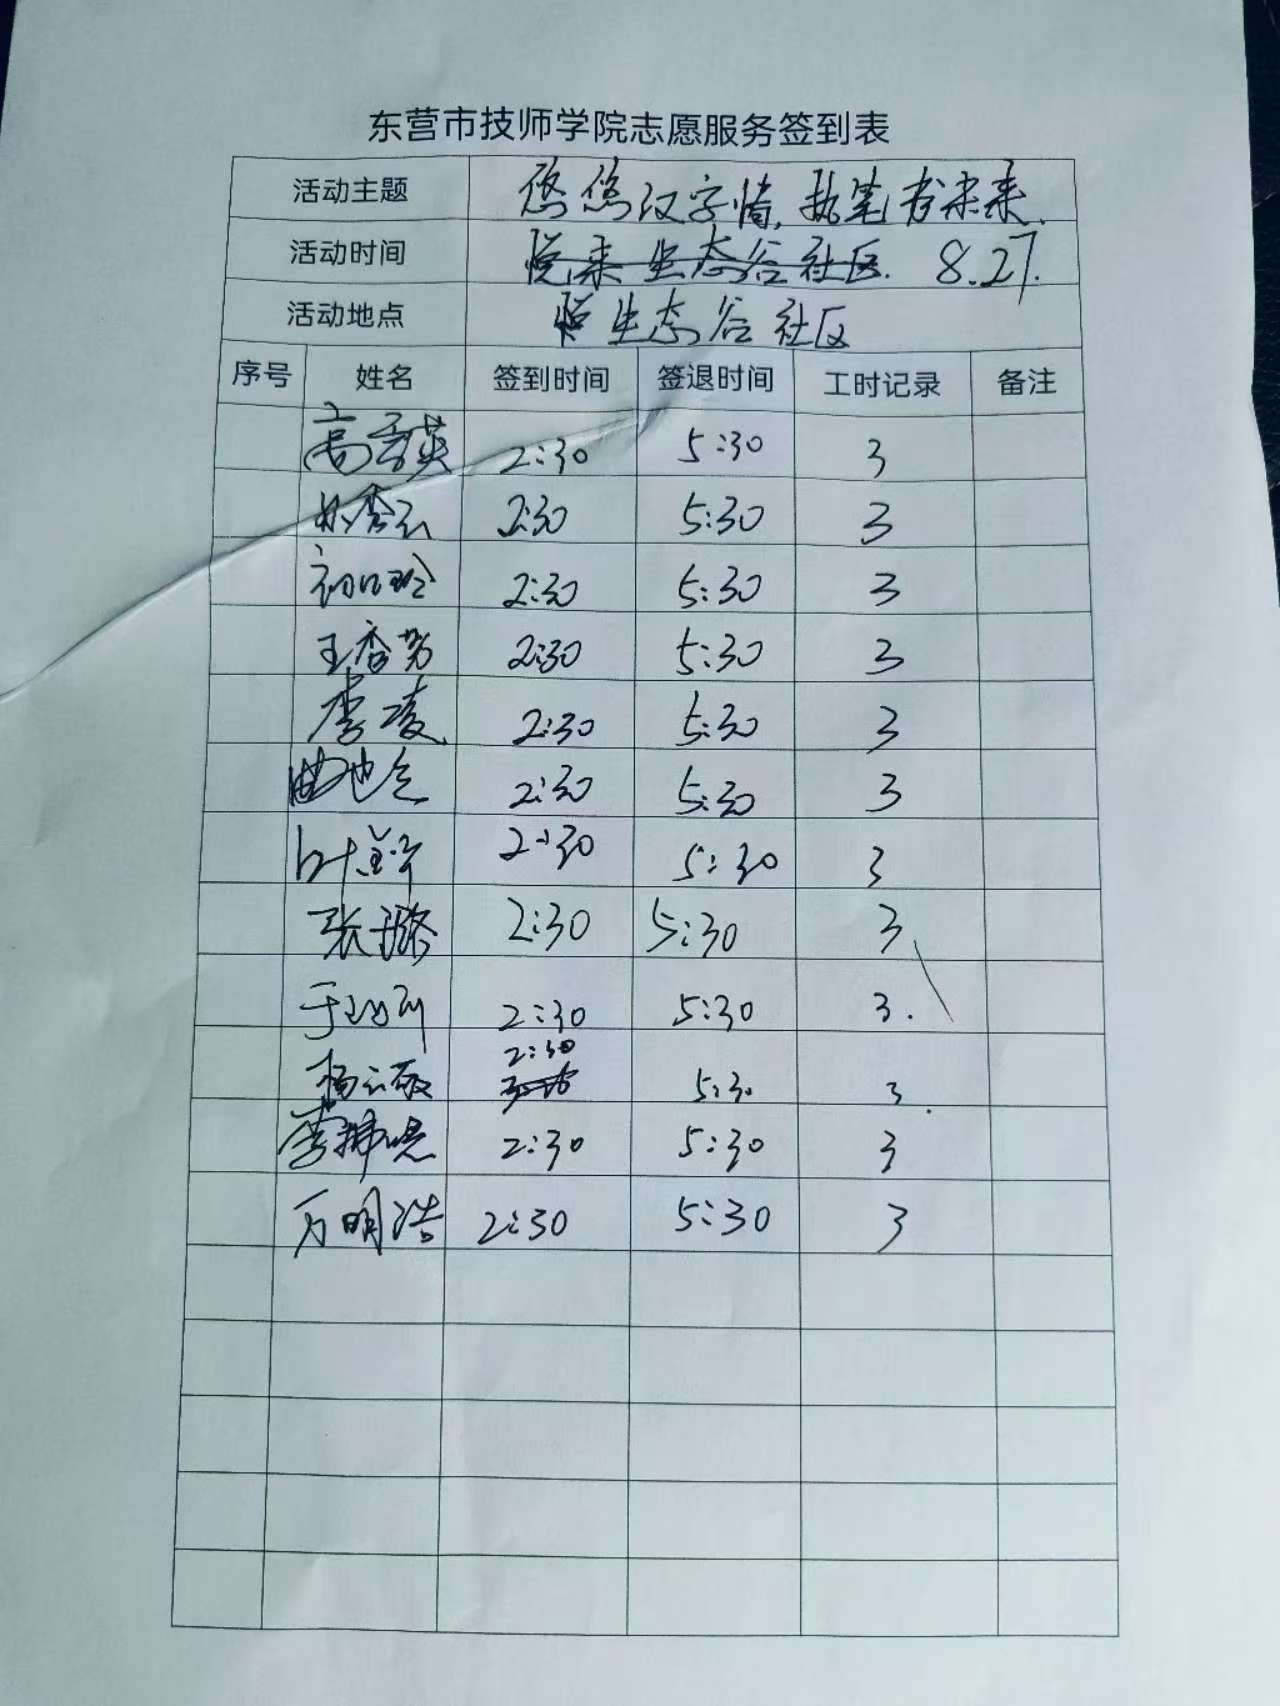 东营市技师学院志愿服务签到表
活动主题 悠悠汉字情,执笔书未来.
活动时间 悦来生态谷社区. 8.27.
活动地点 生态谷社区
序号 姓名 签到时间 签退时间 工时记录 备注
高秀英 2:30 5:30 3
2:30 5:30 3
2:30 5:30 3
王秀芳 2:30 5:30 3
李凌 2:30 5:30 3
2:30 5:30 3
2:30 5:30 3
张璐 2:30 5:30 3
2:30 5:30 3.
2:30
杨云敬 5:30 3.
李拂晓 2:30 5:30 3
万明浩 2:30 5:30 3